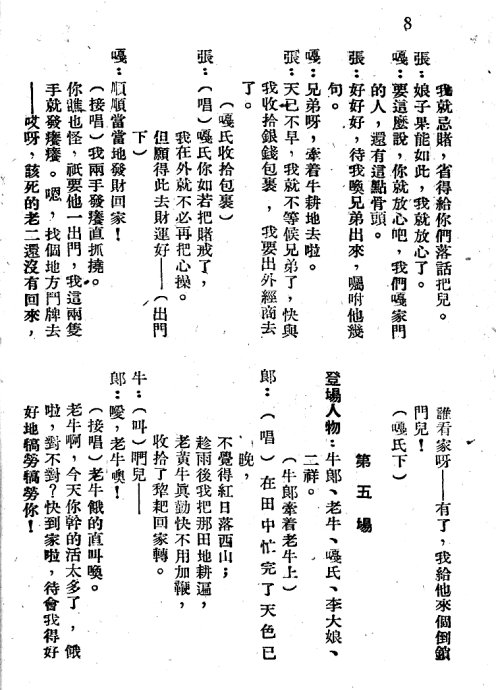 8
我就忌賭，省得給你們落話把兒。
張：娘子果能如此，我就放心了。
嘎：要這麽說，你就放心吧，我們嘎家門
的人，還有這點骨頭。
張：好好好，待我喚兄弟出來，囑咐他幾
句。
嘎：兄弟呀，牽着牛耕地去啦。
張：天已不早，我就不等候兄弟了，快與
我收拾銀錢包裹，我要出外經商去
了。
（嘎氏收拾包裹）
張：（唱）嘎氏你如若把賭戒了，
我在外就不必再把心操。
但願得此去財運好——（出門
下）
嘎：順順當當地發財回家！
（接唱）我兩手發癢直抓撓。
你瞧也怪，祇要他一出門，我這兩隻
手就發癢癢。嗯，找個地方鬥牌去
——哎呀，該死的老二還沒有回來，
誰看家呀——有了，我給他來個倒鎖
門兒！
（嘎氏下）
第五場
登場人物：牛郎、老牛、嘎氏、李大娘、
二祥。
（牛郎牽着老牛上）
郎：（唱）在田中忙完了天色已
晚，
不覺得紅日落西山；
趁雨後我把那田地耕遍，
老黃牛眞勤快不用加鞭，
收拾了犂耙回家轉。
牛：（叫）啊兒——
郎：噯，老牛噢！
（接唱）老牛餓的直叫喚。
老牛啊，今天你幹的活太多了，餓
啦，對不對？快到家啦，待會我得好
好地犒勞犒勞你！